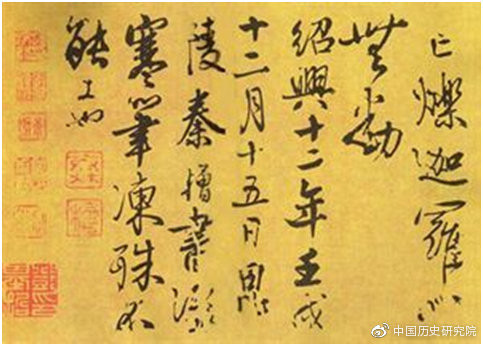 亡爍迦羅心
無動
紹興十二年壬戌
十二月十五日
陵秦檜書
寒筆凍殊不
能工也
中国历史研究院